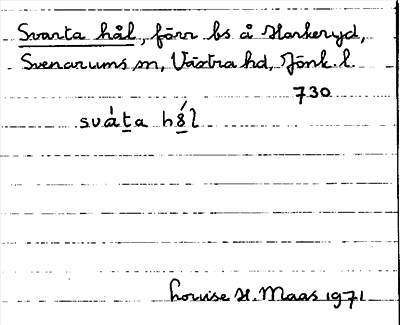 Svarta hål, förr bs å Harkeryd,
Svenarums sn, Västra hd, Jönk. l.
730
sváṯa h8́l
Louise H. Maas 1971